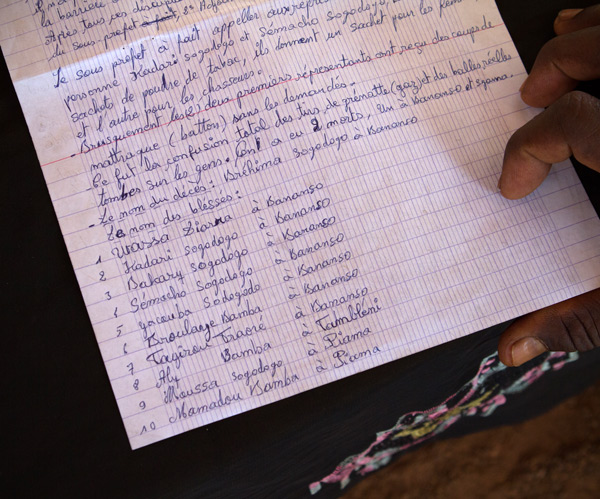 la barrière
Après tous ces
Le sous prefet à fait appeller aux
personne Kadari sogodogo et Semacho Sogodogo,
sachets de poudre de tabac, ils donnent un sachet pour les
et l'autre pour les chasseurs.
- Brusquement les deux premiers réprésentants ont reçu des coups de
mattraque (batton) sans les demandés.
Ce fut la confusion total des tirs de grénatte (gaz) et des balles réelles
tombés sur les gens. ont a eu 2 morts, un à Bananso et sgama.
- Le nom du décès: Brehima sogodogo à Bananso
Le nom des blessés:
1 Diarra à Bananso
2 Kadari Sogodogo à Bananso
3 Bakary Sogodogo à Bananso
4 Semacho Sogodogo à Bananso
5 yacouba Sodogodo à Bananso
6 Broulaye Bamba à Bananso
7 Tagirou Traoré à Bananso
8 Aly Bamba à Tambleni
9 Moussa Sogodogo à Piama
10 Mamadou Bamba à Piama